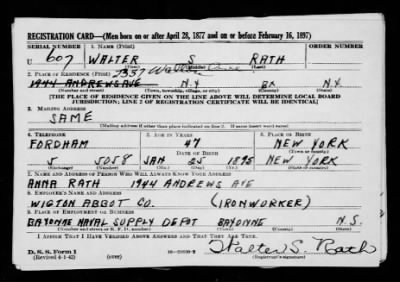 REGISTRATION CARD—(Men born on or after April 28, 1877 and on or before February 16, 1897)
SERIAL NUMBER 1. NAME (Print)
U 607 WALTER S RATH
(First) (Middle) (Last)
2. PLACE OF RESIDENCE (Print) 2337
1944 ANDREWS AVE N.Y. BX N.Y.
(Number and street) (Town, township, village, or city) (County) (State)
[THE PLACE OF RESIDENCE GIVEN ON THE LINE ABOVE WILL DETERMINE LOCAL BOARD
JURISDICTION; LINE 2 OF REGISTRATION CERTIFICATE WILL BE IDENTICAL]
3. MAILING ADDRESS
SAME
[Mailing address if other than place indicated on line 2. If same insert word same]
4. TELEPHONE 5. AGE IN YEARS 6. PLACE OF BIRTH
FORDHAM 47 NEW YORK
DATE OF BIRTH (Town or county)
5 5058 JAN 25 1895 NEW YORK
(Exchange) (Number) (Mo.) (Day) (Yr.) (State or country)
7. NAME AND ADDRESS OF PERSON WHO WILL ALWAYS KNOW YOUR ADDRESS
ANNA RATH 1944 ANDREWS AVE
8. EMPLOYER'S NAME AND ADDRESS
WIGTON ABBOT CO. (IRONWORKER)
9. PLACE OF EMPLOYMENT OR BUSINESS
BAYONNE NAVAL SUPPLY DEPOT BAYONNE N.J.
(Number and street or R. F. D. number) (Town) (County) (State)
I AFFIRM THAT I HAVE VERIFIED ABOVE ANSWERS AND THAT THEY ARE TRUE.
D. S. S. Form 1 Walter S. Rath
(Revised 4-1-42) (over) (Registrant's signature)